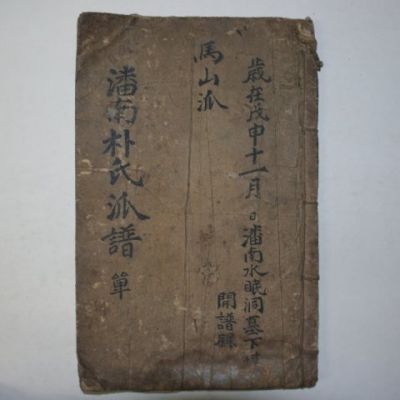 歲在戊申十一月 日潘南水眠洞墓下
開譜
馬山派
潘南朴氏派譜 單